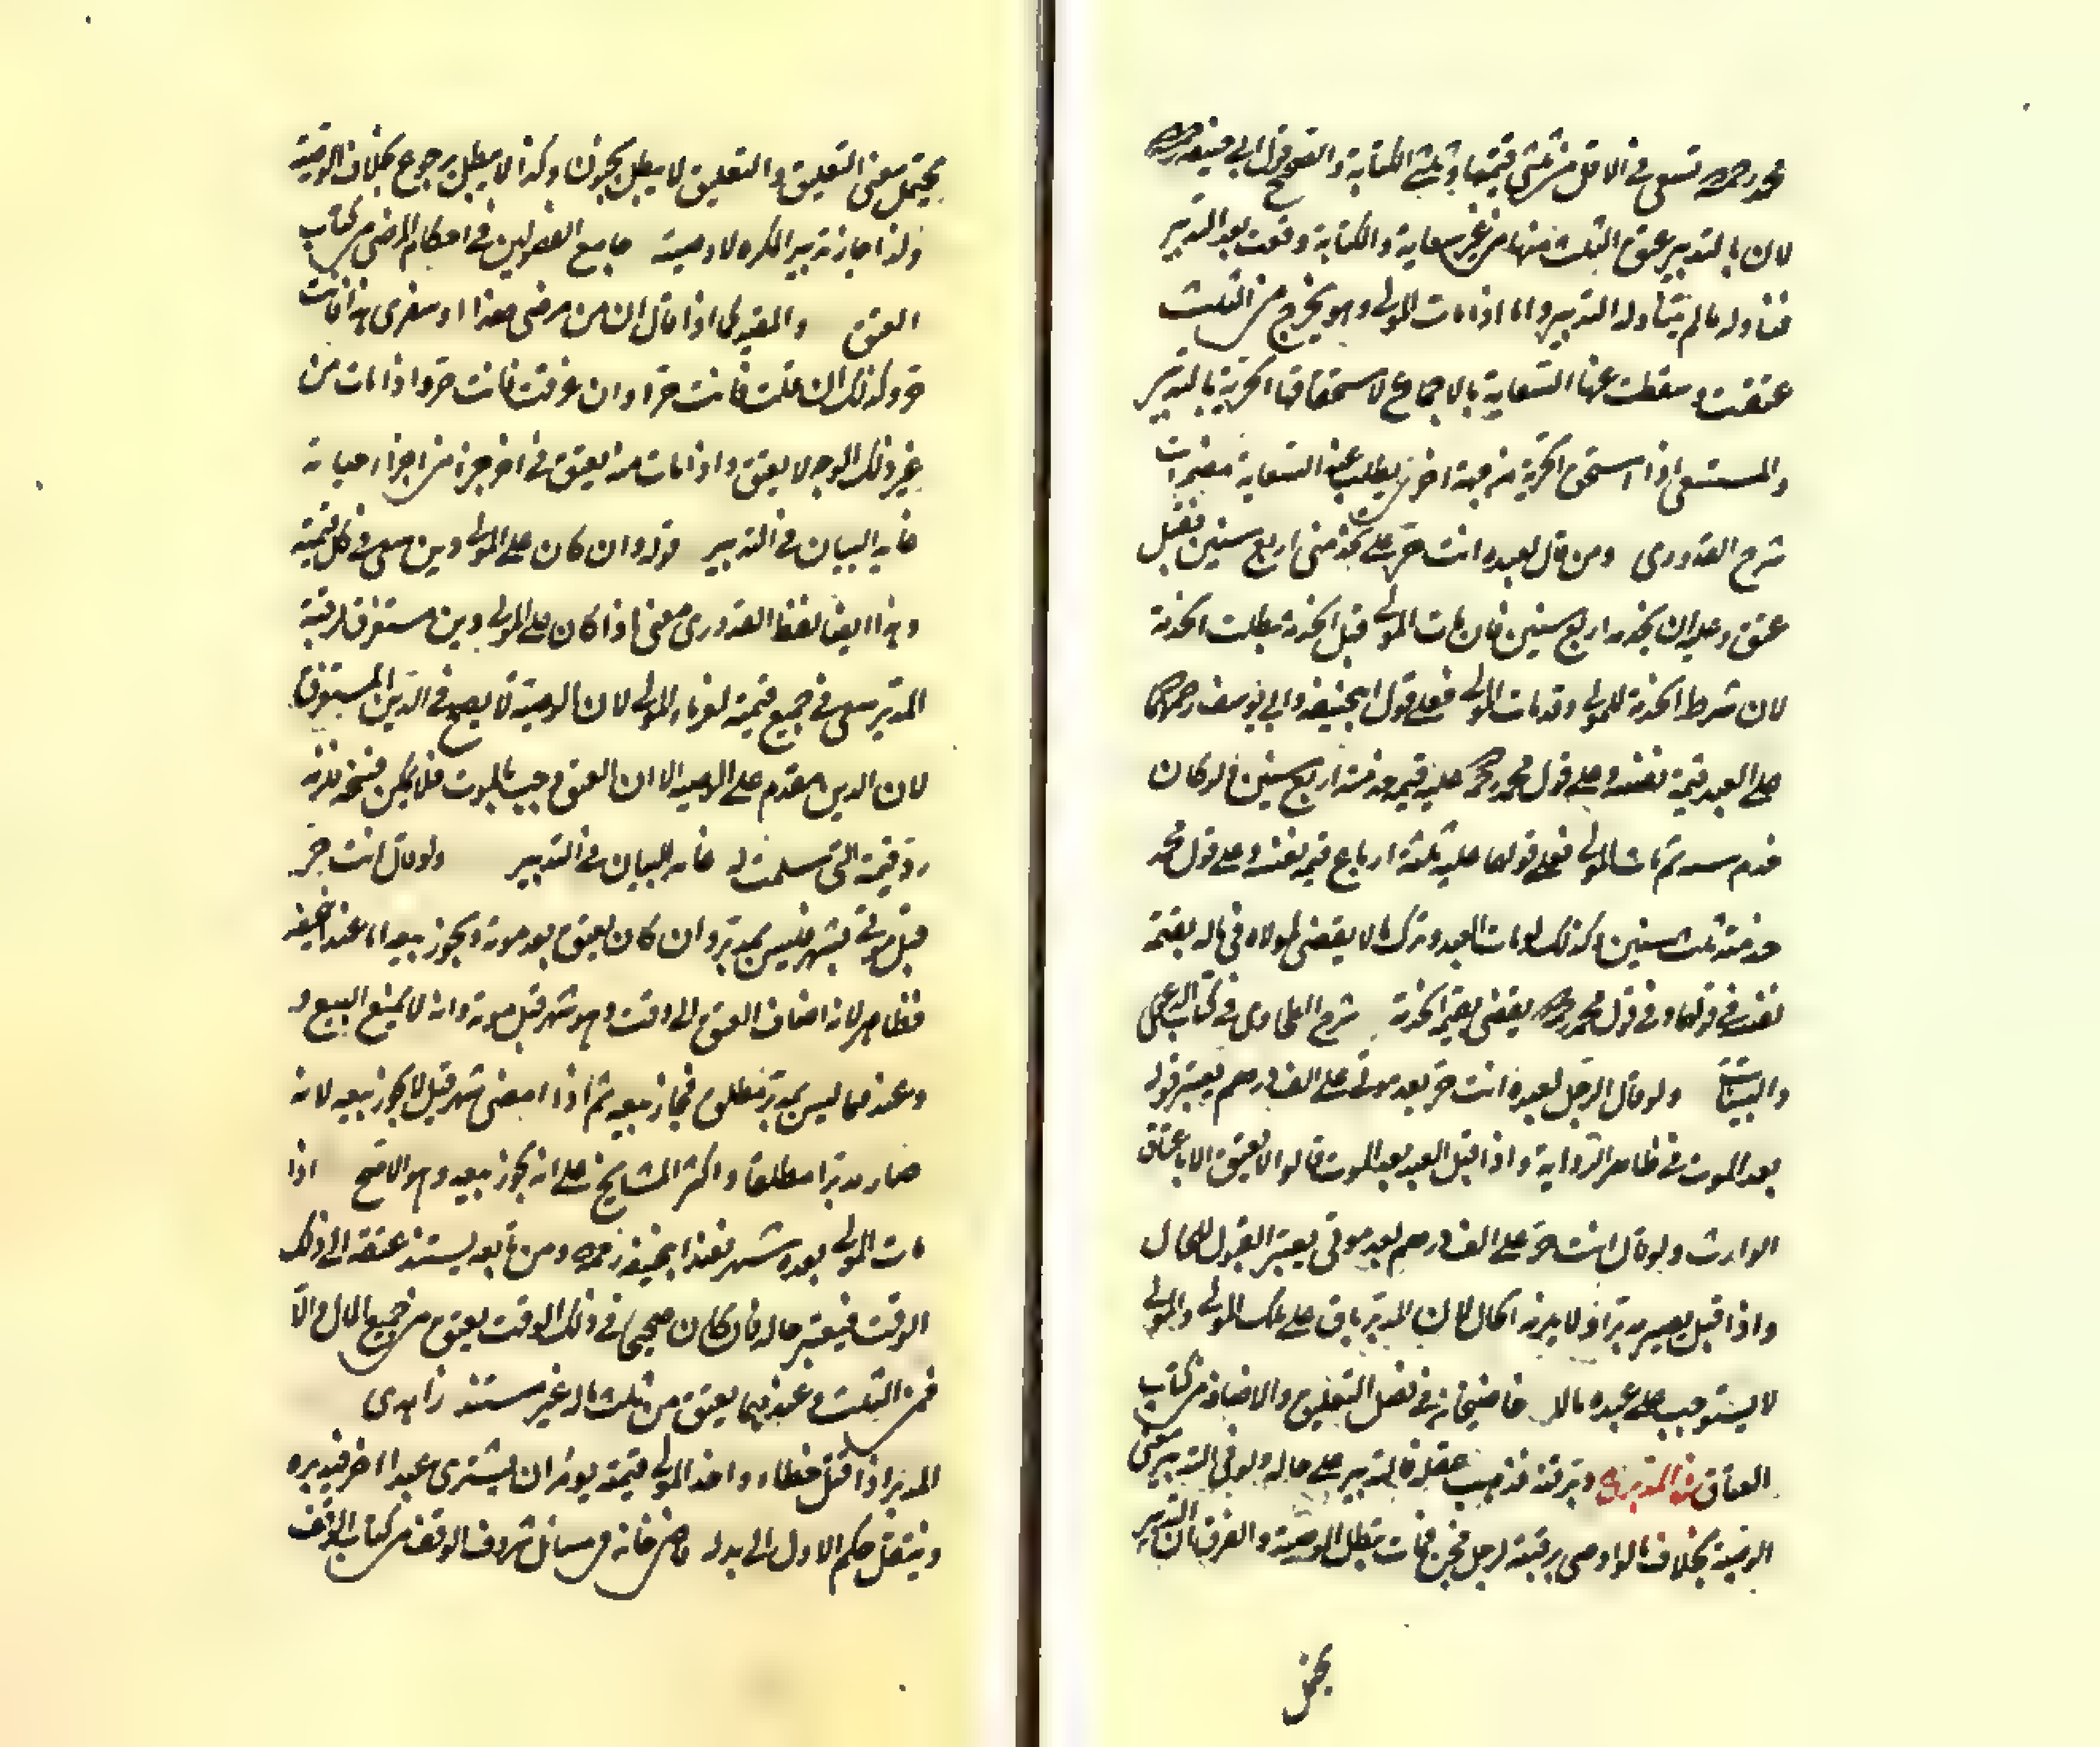 محمد رحمه الله تسعى في الاقل من ثلثي قيمتها وثلثي الكتابة والصحيح قول ابي حنيفة رحمه الله
لان بالتدبير عتق الثلث منها من غير سعاية والكتابة وقعت بعد التدبير
فتناول ما لم يتناوله التدبير واما اذا مات المولى وهو يخرج من الثلث
عتقت وسقطت عنها السعاية بالاجماع لاستحقاقها الحرية بالتدبير
والمستسعى اذا استحق الحرية من جهة اخرى يبطل عنه السعاية مضمرات
شرح القدوري ومن قال لعبده انت حر على ان تخدمني اربع سنين فقبل
عتق وعليه ان يخدمه اربع سنين فان مات المولى قبل الخدمة بطلت الخدمة
لان شرط الخدمة للمولى وقد مات المولى فعلى قول ابي حنيفة وابي يوسف رحمهما الله
على العبد قيمة نفسه وعلى قول محمد رحمه الله عليه قيمة خدمته اربع سنين ولو كان
خدم سنة ثم مات المولى فعلى قولهما عليه ثلثة ارباع قيمة نفسه وعلى قول محمد
خدمته ثلث سنين وكذلك لو مات العبد وترك مالا يقضى لمولاه في ماله بقيمة
نفسه في قولهما وفي قول محمد رحمه الله يقضى بقيمة الخدمة شرح الطحاوي في كتاب الدعوى
والبينات ولو قال الرجل لعبده انت حر بعد موتي على الف درهم يعتبر قبوله
بعد الموت في ظاهر الرواية واذا قبل العبد بعد الموت قالوا لا يعتق الا باعتاق
الوارث ولو قال انت حر على الف درهم بعد موتي يعتبر القبول للحال
واذا قبل يصير مدبرا ولا يلزمه المال لان المدبر باق على ملك المولى والمولى
لا يستوجب على عبده مالا قاضيخان في فصل التعليق والاضافة من كتاب
العتاق دبر قنه فذهب عقله فالتدبير على حاله ولو في التدبير معنى
الوصية بخلاف ما لو اوصى برقبته لرجل فجن فمات تبطل الوصية والفرق ان التدبير
يحتمل
يحتمل معنى التعليق والتعليق لا يبطل بجنون وكذا لا يبطل برجوع بخلاف الوصية
ولذا جاز تدبير المكره لا وصيته جامع الفصولين في احكام المرضى من كتاب
العتق والمقيد كما اذا قال ان مت من مرضي هذا او سفري هذا فانت
حر وكذلك ان قتلت فانت حر او ان غرقت فانت حر واذا مات من
غير ذلك الوجه لا يعتق واذا مات منه يعتق في اخر جزء من اجزاء حياته
غاية البيان في التدبير قوله وان كان على المولى دين سعى في كل قيمته
وهذا ايضا لفظ القدوري يعني اذا كان على المولى دين مستغرق لرقبة
المدبر سعى في جميع قيمته لغرماء المولى لان الوصية لا يصح في الدين المستغرق
لان الدين مقدم على الوصية الا ان العتق وجب بالموت فلا يمكن فسخه فلزمه
رد قيمته التي سلمت له غاية البيان في التدبير ولو قال انت حر
قبل موتي بشهر فليس بمدبر وان كان يعتق بعد موته ويجوز بيعه اما عند ابي حنيفة
فظاهر لانه اضاف العتق الى وقت وهو شهر قبل موته وانه لا يمنع البيع و
وعندهما ليس بمدبر مطلق فجاز بيعه ثم اذا مضى شهر قيل لا يجوز بيعه لانه
صار مدبرا مطلقا واكثر المشايخ على انه يجوز بيعه وهو الاصح اذا
مات المولى بعد شهر فعند ابي حنيفة رحمه الله ومن تابعه يستند عتقه الى ذلك
الوقت فيعتبر حاله فان كان صحيحا في ذلك الوقت يعتق من جميع المال والا
فمن الثلث وعندهما يعتق من ثلث ماله غير مستند زاهدي
المدبر اذا قتل خطاء واخذ المولى قيمته يؤمر ان يشتري عبدا اخر فيدبره
وينتقل حكم الاول الى بدله قاضي خان في مسائل شروط الوقف من كتاب الوقف